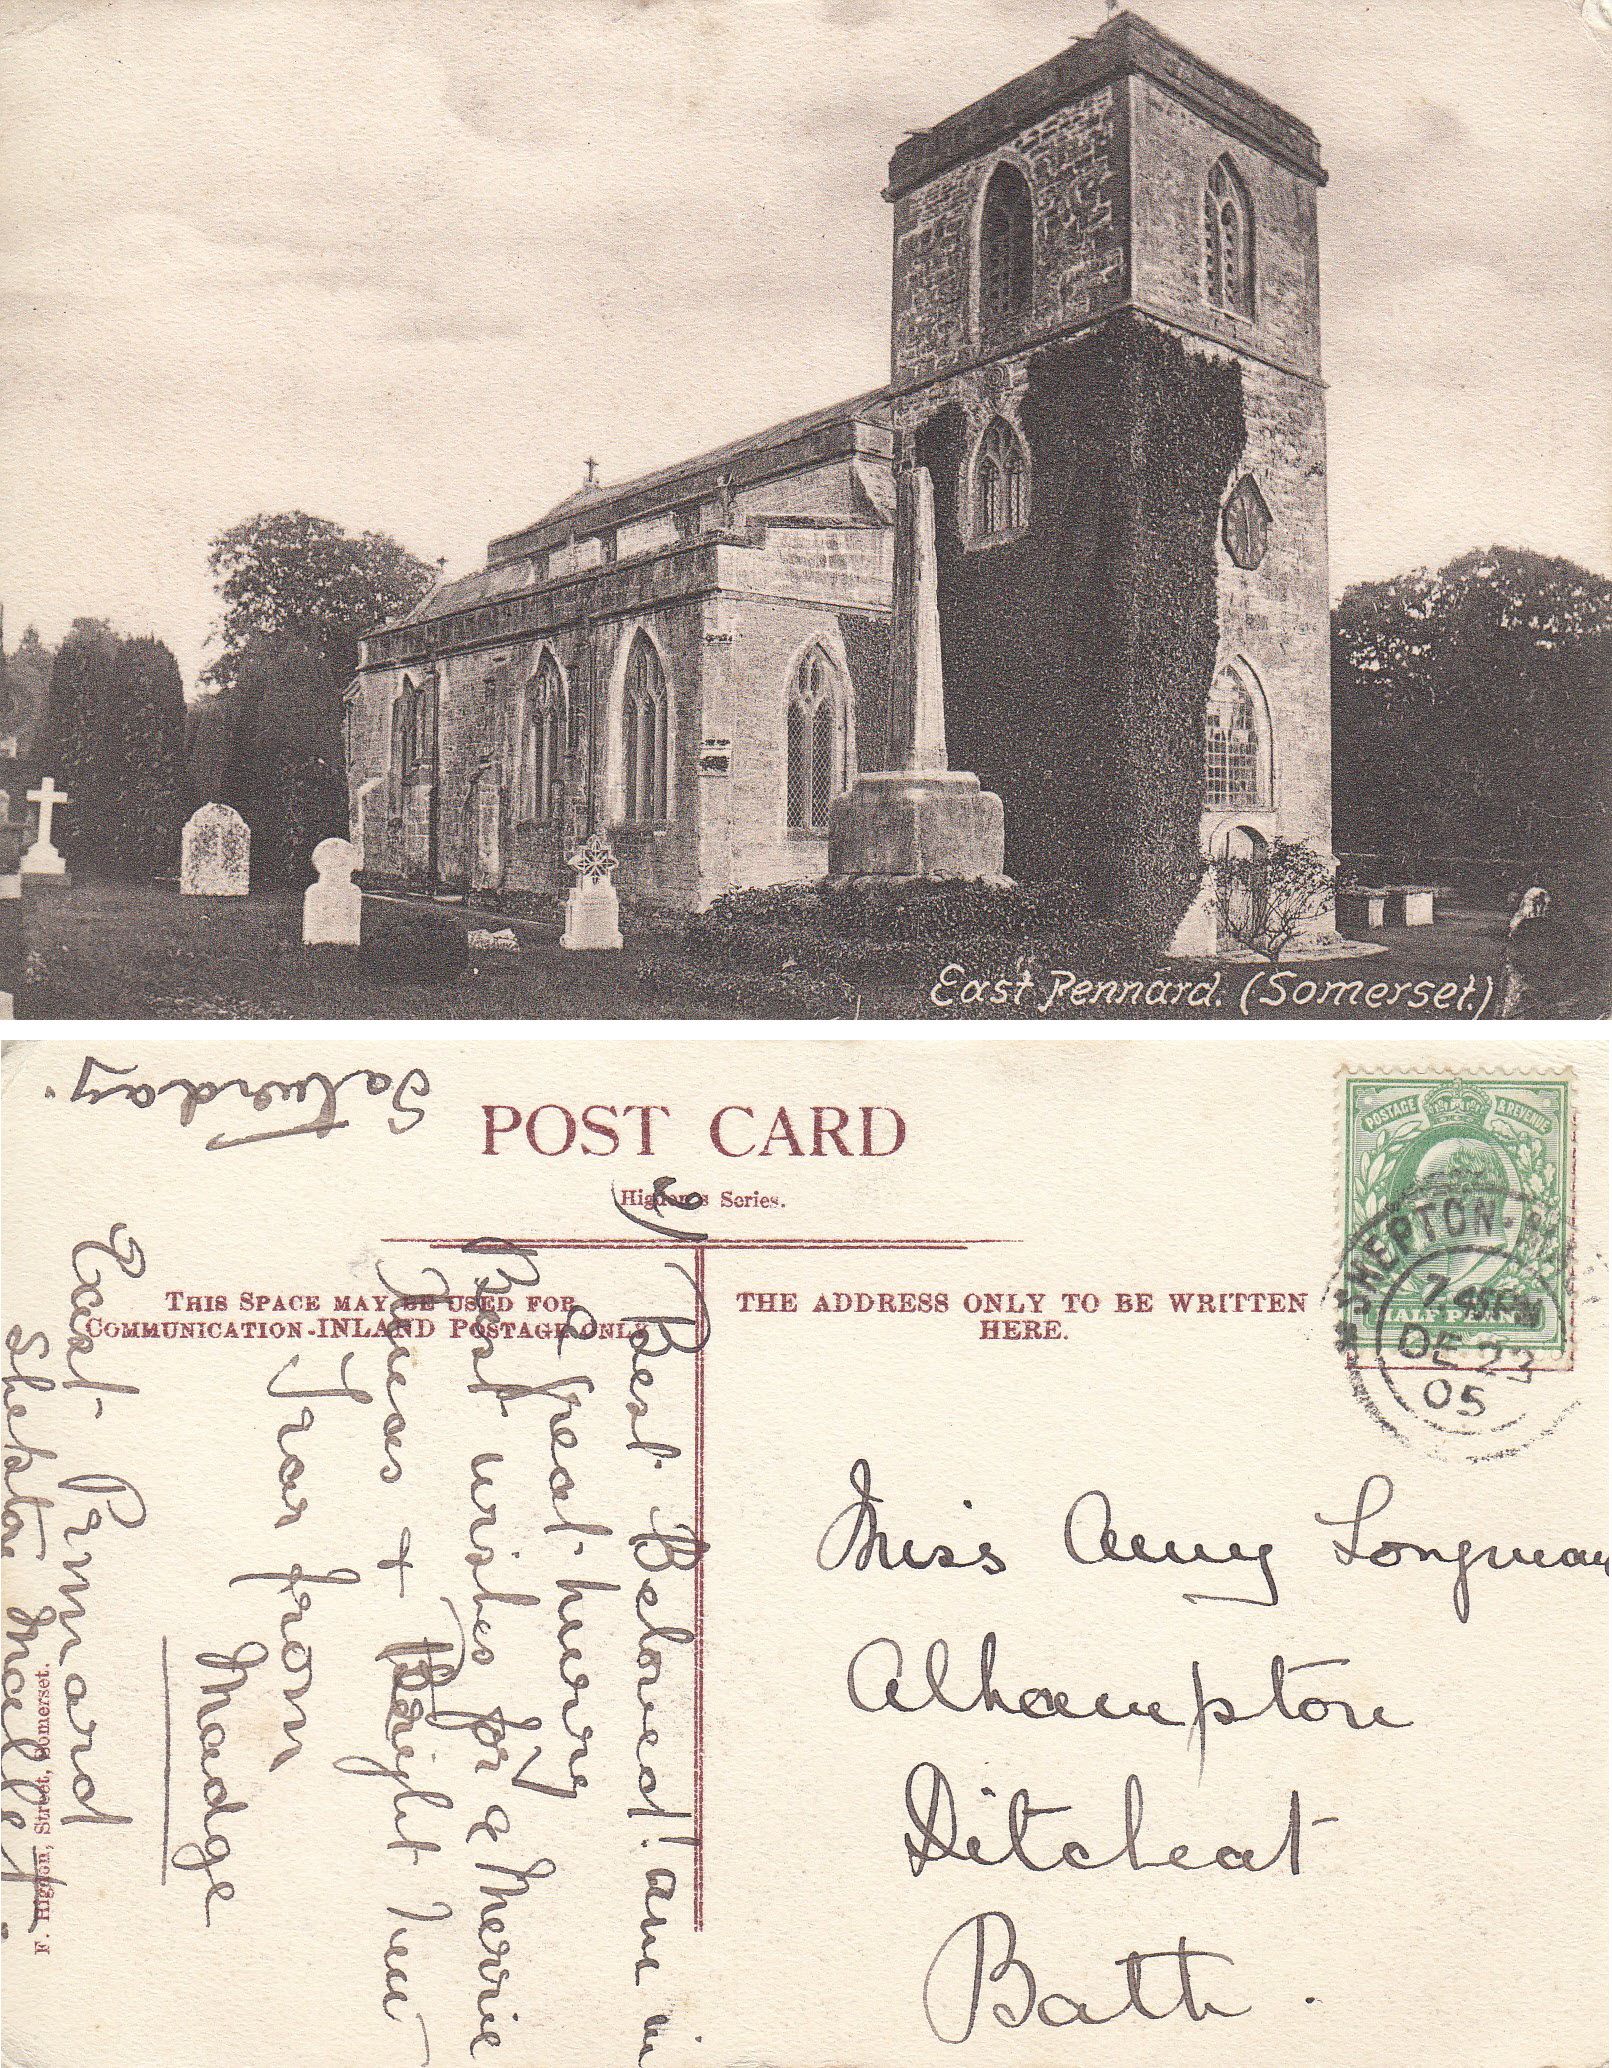 East Pennard. (Somerset.)
POST CARD
Higdon's Series.
THIS SPACE MAY BE USED FOR
COMMUNICATION-INLAND POSTAGE ONLY
THE ADDRESS ONLY TO BE WRITTEN
HERE.
F. Higdon, Street, Somerset.
POSTAGE & REVENUE
HALFPENNY
SHEPTON
DE 22
05
Miss Amy Longman
Alhampton
Ditcheat
Bath.
Saturday.
East Pennard
Shepton Mallet.
Best Beloved! am in
a great hurry
Best wishes for a Merrie
Xmas + Bright New
Year from
Madge